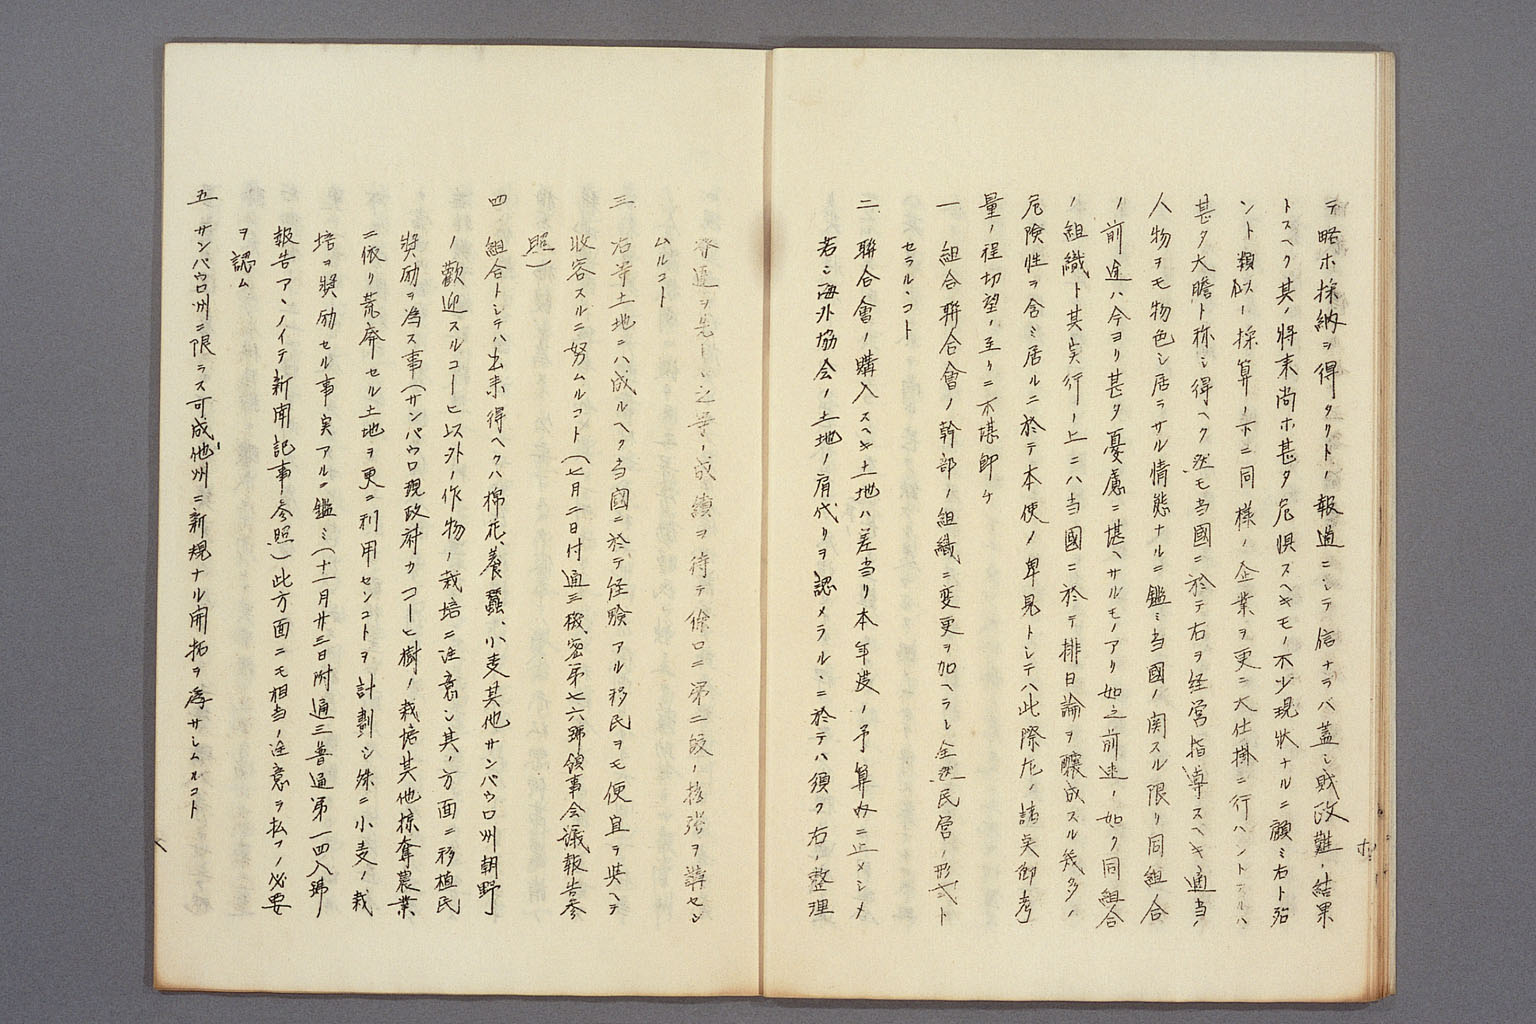 テ略ホ採納ヲ得タリトノ報道ニシテ信ナラバ蓋シ財政難ノ結果
トスヘク其ノ将来尚ホ甚タ危惧スヘキモノ不少現状ナルニ顧ミ右ト殆
ント類似ノ採算ノ下ニ同様ノ企業ヲ更ニ大仕掛ニ行ハントスルハ
甚タ大膽ト称シ得ヘク然モ当國ニ於テ右ヲ経営指導スヘキ適当ノ
人物ヲモ物色シ居ラサル情態ナルニ鑑ミ当國ノ関スル限リ同組合
ノ前途ハ今ヨリ甚タ憂慮ニ堪ヘサルモノアリ如之前述ノ如ク同組合
ノ組織ト其実行ノ上ニハ当国ニ於テ排日論ヲ醸成スル幾多ノ
危険性ヲ含ミ居ルニ於テ本使ノ卑見トシテハ此際左ノ諸点御考
量ノ程切望ノ至リニ不堪即チ
一 組合聯合會ノ幹部ノ組織ニ変更ヲ加ヘラレ全然民営ノ形式ト
セラルヽコト
二 聯合會ノ購入スヘキ土地ハ差当リ本年度ノ予算内ニ止メシメ
若シ海外協会ノ土地ノ肩代リヲ認メラルヽニ於テハ須ク右ノ整理
ヲ先トシ之等ノ成績ヲ待テ徐ロニ第二段ノ拡張ヲ講セシ
ムルコト
三 右等土地ニハ成ルヘク当國ニ於テ経験アル移民ヲモ便宜ヲ與ヘテ
収容スルニ努ムルコト(七月二日付通三機密第七六号領事会議報告参
照)
四 組合トシテハ出来得ヘクハ棉花、養蠶、小麦其他サンパウロ州朝野
ノ歓迎スルコーヒ以外ノ作物ノ栽培ニ注意シ其ノ方面ニ移植民
奨励ヲ為ス事(サンパウロ現政府カコーヒ樹ノ栽培其他掠奪農業
ニ依リ荒廃セル土地ヲ更ニ利用センコトヲ計劃シ殊ニ小麦ノ栽
培ヲ奬励セル事実アルニ鑑ミ(十一月廿三日附通三普通第一四八号
報告アンノイテ新聞記事参照)此方面ニモ相当ノ注意ヲ払フノ必要
ヲ認ム
五 サンパウロ州ニ限ラス可成他州ニ新規ナル開拓ヲ為サシムルコト